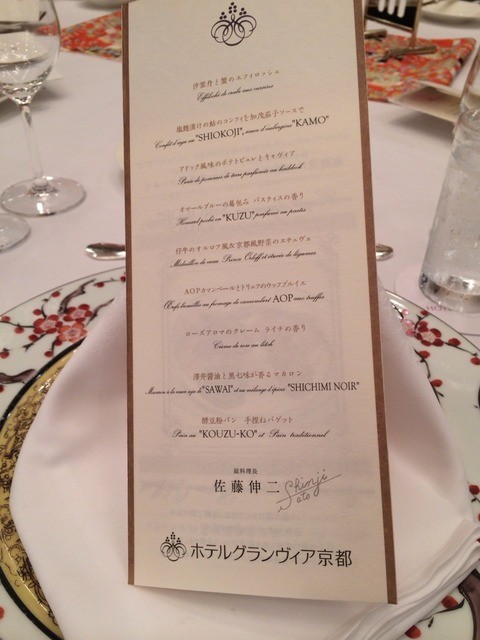 汐雲丹と蟹のエフィロッシェ
塩麹漬けの鮎のコンフィを加茂茄子ソースで
"SHIOKOJI", "KAMO"
アドック風味のポテトピュレとキャヴィア
Purée de pommes de terre parfumée au haddock
オマールブルーの葛包み パスティスの香り
Homard poché en "KUZU" parfumé au pastis
仔牛のオルロフ風&京都風野菜のエチュヴェ
Médaillon de veau Prince Orloff et étuvée de légumes
AOPカマンベールとトリュフのウッフブルイエ
Œufs brouillés au fromage de camembert AOP aux truffes
ローズアロマのクレーム ライチの香り
Crème de rose au litchi
澤井醤油と黒七味が香るマカロン
"SAWAI" "SHICHIMI NOIR"
酵豆粉パン 手捏ねバゲット
Pain au "KOUZU-KO" et Pain traditionnel
総料理長
佐藤伸二 Shinji Sato
ホテルグランヴィア京都